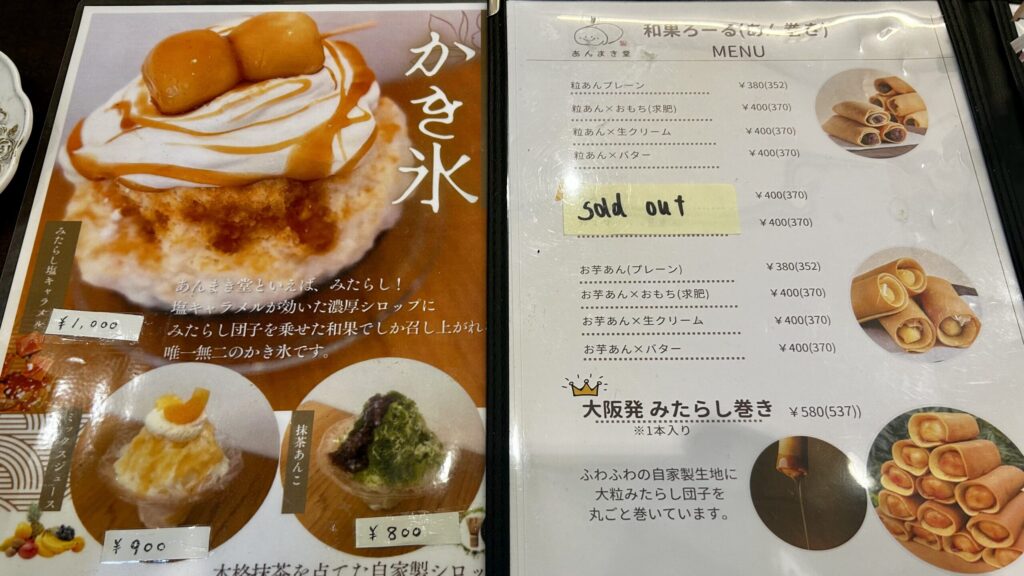 かき氷
みたらし塩キャラメル
¥1,000
あんまき堂といえば、みたらし!
塩キャラメルが効いた濃厚シロップに
みたらし団子を乗せた和果でしか召し上がれ
唯一無二のかき氷です。
ミックスジュース
¥900
抹茶あんこ
¥800
本格抹茶を点てた自家製シロッ
あんまき堂
和果ろーる(あん巻き)
MENU
粒あんプレーン ¥380(352)
粒あん×おもち(求肥) ¥400(370)
粒あん×生クリーム ¥400(370)
粒あん×バター ¥400(370)
sold out ¥400(370)
¥400(370)
お芋あん(プレーン) ¥380(352)
お芋あん×おもち(求肥) ¥400(370)
お芋あん×生クリーム ¥400(370)
お芋あん×バター ¥400(370)
大阪発 みたらし巻き ¥580(537))
※1本入り
ふわふわの自家製生地に
大粒みたらし団子を
丸ごと巻いています。